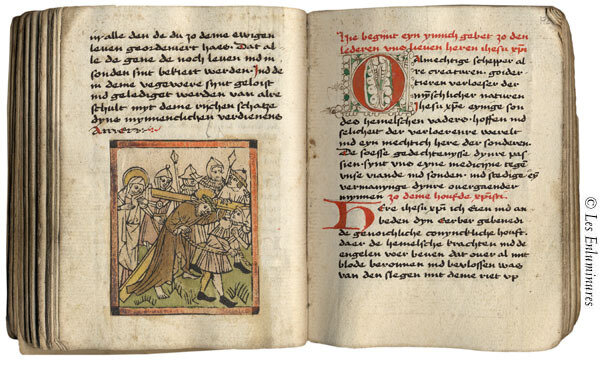 in alle den de du zo deme ewigen
leuen geordeniert haes. Dat al
le de gene de noch leuen ind in
sonden sint bekiert werden. Ind de
in deme vegevuere sijnt geloist
ind geledigit werden van alre
schult myt deme rijchen schatze
dyns mynnenclichen verdienens
Amen
Hie begint eyn ynnich gebet zo den
lederen uns lieuen heren ihesu xpi
O Almechtige schepper al
re creaturen. goider
tieren verloeser der
mynschlicher naturen
Ihesu xpe eynige son
des hemelschen vaders. hoffen ind
selicheit der verloerenre werelt
ind eyn mechtich here der sonderen.
De soesse gedechtenysse dynre pas
sien synt uns eyne medicine tege
unse viande ind sonden. ind stedige ey
vermanynge dynre overgaender
mynnen zo deme houfde xpisti
Here ihesu xpi ich eren ind an
beden dyn eerber gebenedi
de genoichliche conynckliche houft.
daer de hemelsche
engelen voer beuen dat ouer al mit
blode berounen ind beslossen was
van den slegen mit deme riet up
© Les Enluminures